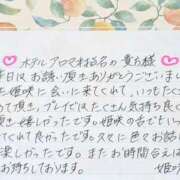 ホテルアロマ 213名の貴方様
本日は お誘い頂きありがとうございま
た姫咲に会いに来てくれて、いつもたく
て頂き、プレイではたくさん気持ち良く
き嬉しかったです。姫咲の
てくれて良かったです。久々に色々お話
楽しかったです。またお時間合えば
お待ちしております。
姫咲